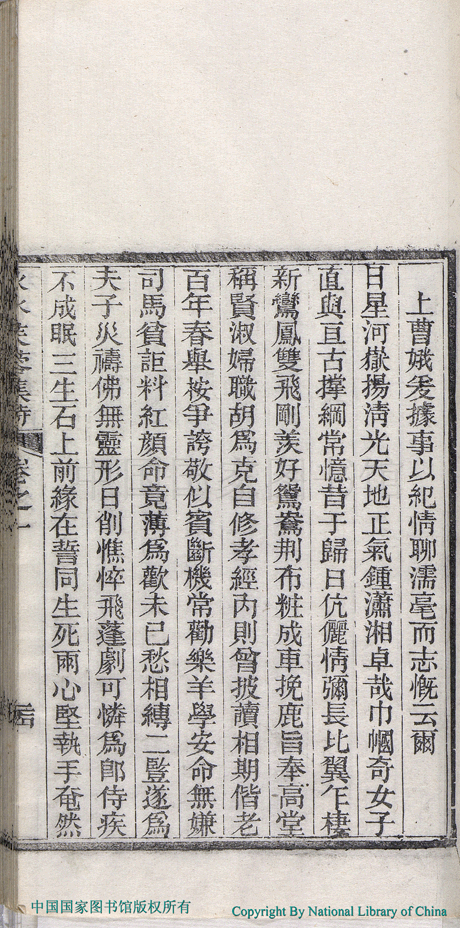 上曹娥爰據事以紀情聊濡毫而志慨云爾
日星河嶽揚清光天地正氣鍾瀟湘卓哉巾幗奇女子
直與亘古撐綱常憶昔于歸日伉儷情彌長比翼乍棲
新鸞鳳雙飛剛羨好鴛鴦荆布粧成車挽鹿旨奉高堂
稱賢淑婦職胡爲克自修孝經内則曾披讀相期偕老
百年春舉按爭誇敬似賓斷機常勸樂羊學安命無嫌
司馬貧詎料紅顏命竟薄爲歡未已愁相縛二豎遂爲
夫子災禱佛無靈形日削憔悴飛蓬劇可憐爲郎侍疾
不成眠三生石上前緣在誓同生死兩心堅執手奄然
芙蓉集詩 卷之一
中国国家图书馆版权所有
Copyright By National Library of China